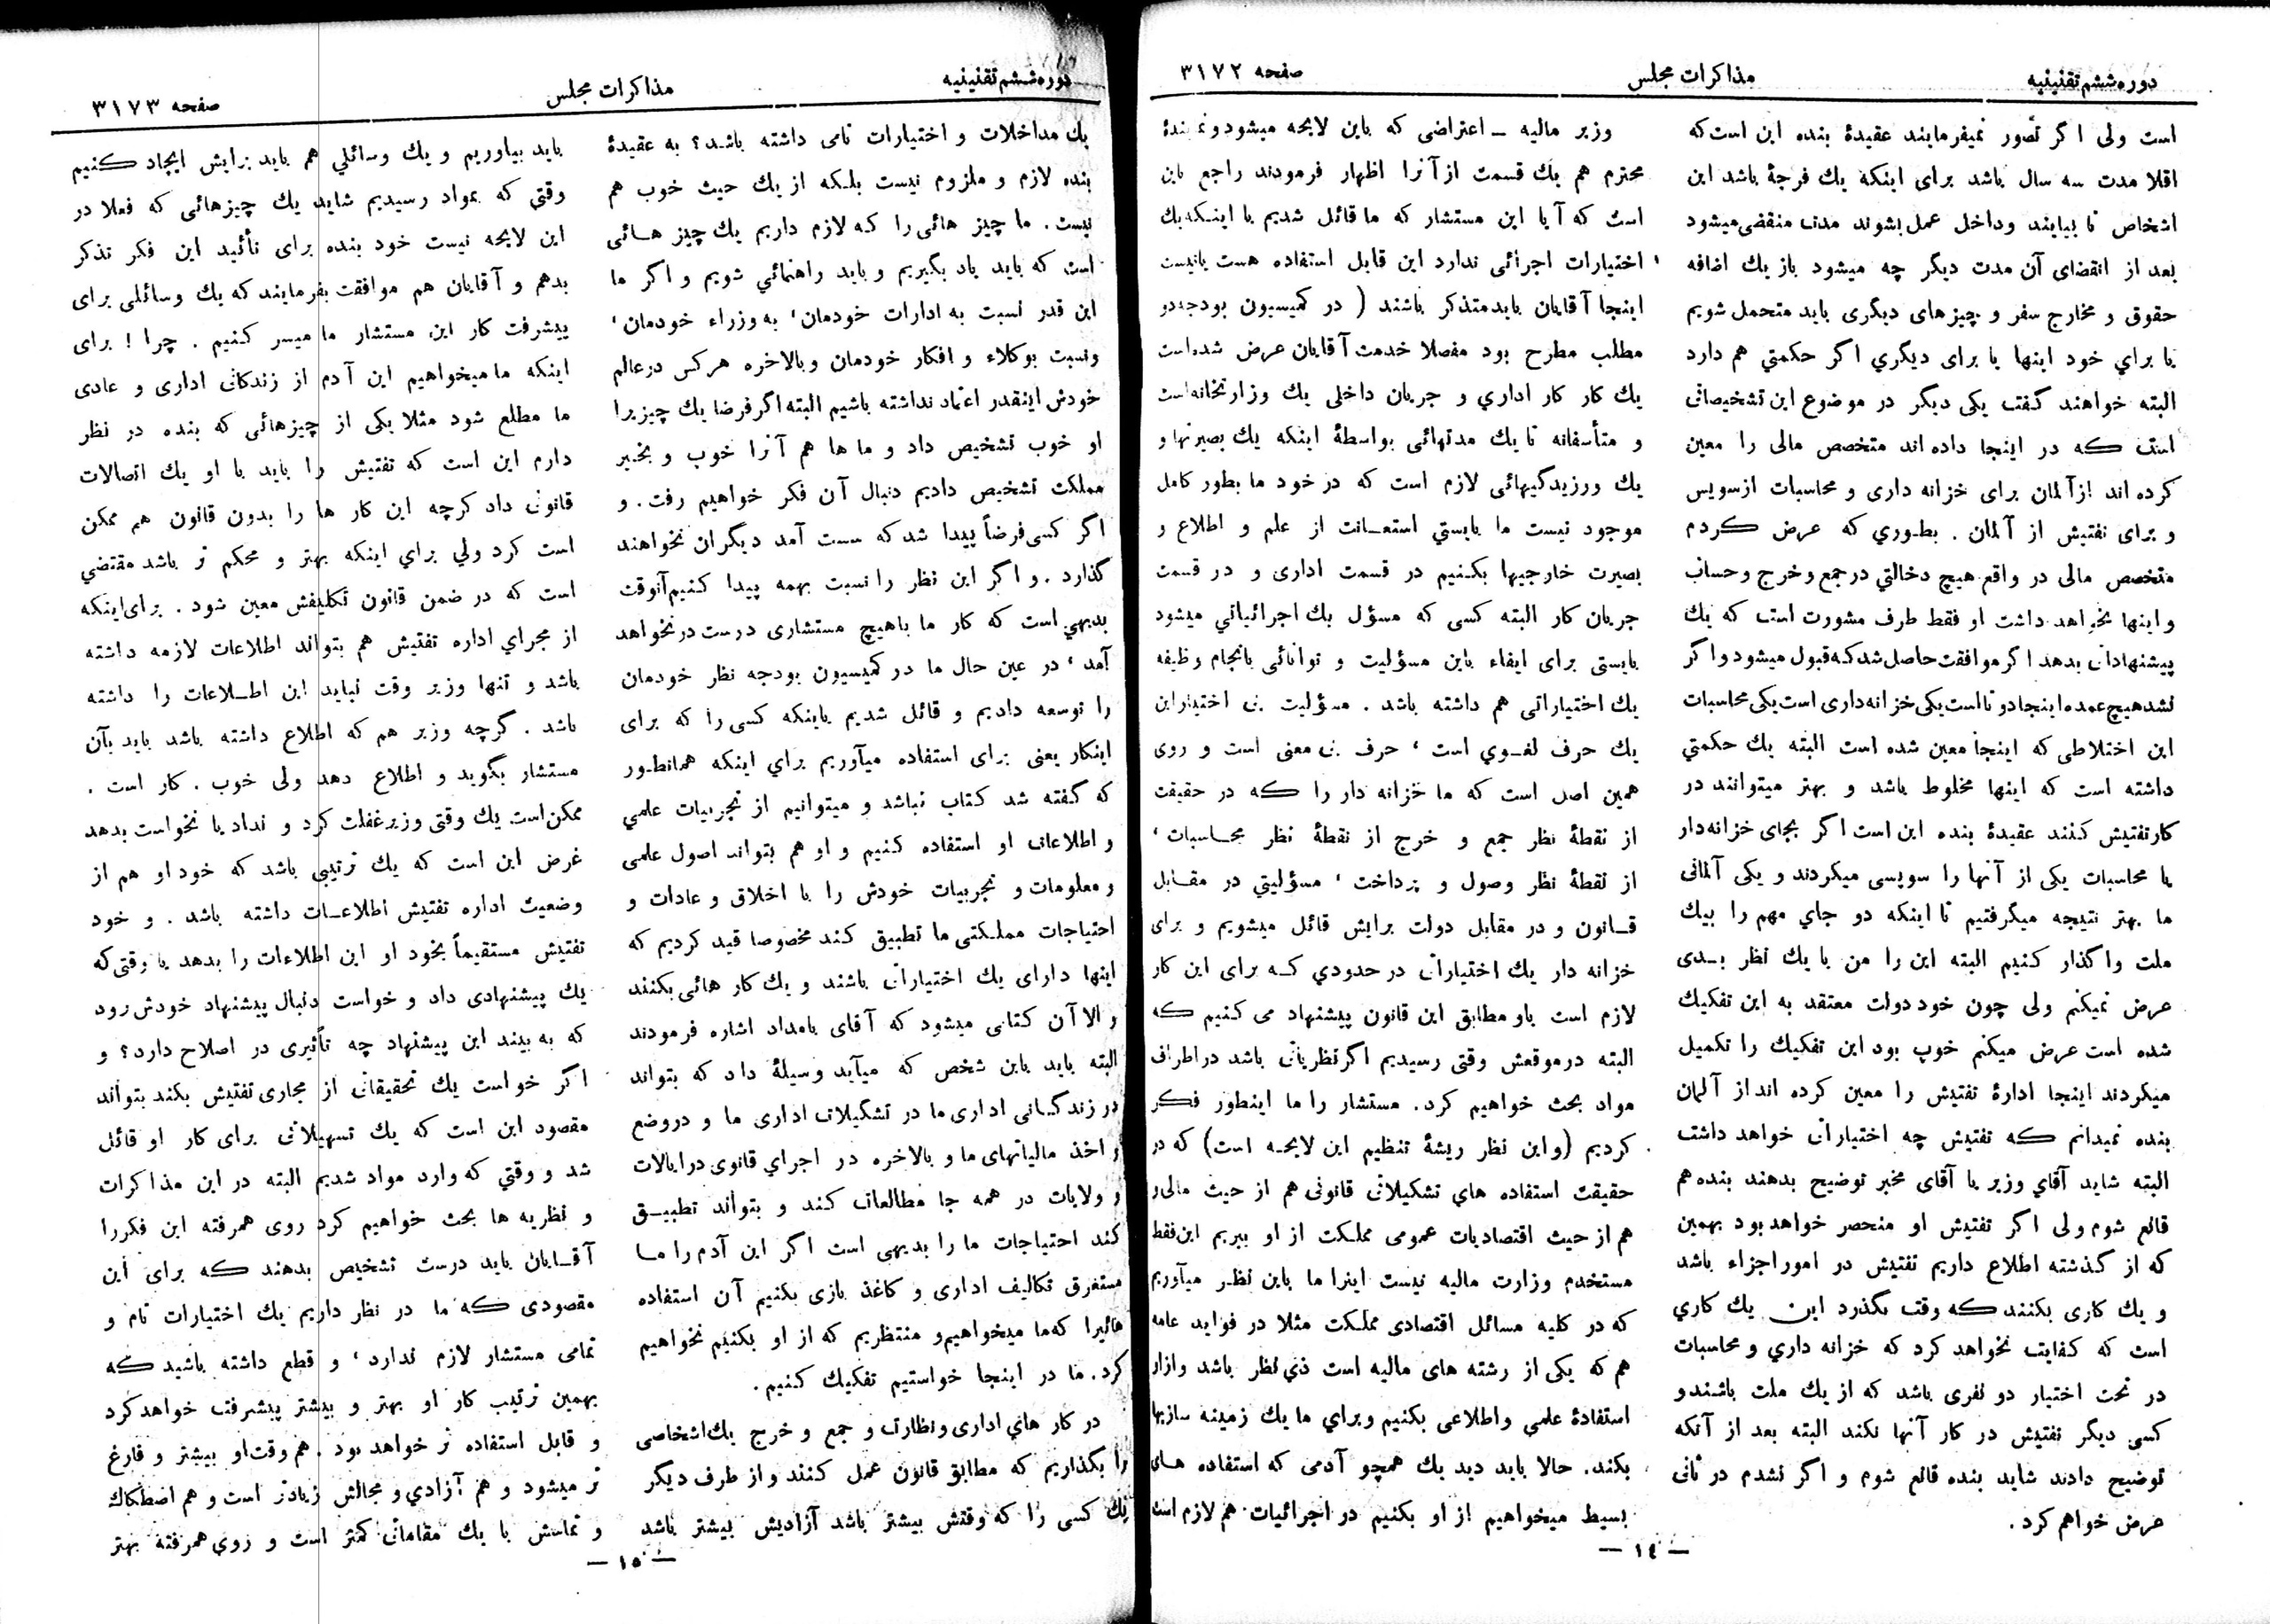 دوره ششم تقنینیه
مذاکرات مجلس
صفحه ۳۱۷۲
است ولی اگر تصور نمیفرمایند عقیدهٔ بنده این است که
اقلا مدت سه سال باشد برای اینکه یك فرجهٔ باشد این
اشخاص تا بیایند و داخل عمل بشوند مدت منقضی میشود
بعد از انقضای آن مدت دیگر چه میشود باز یك اضافه
حقوق و مخارج سفر و چیزهای دیگری باید متحمل شویم
یا برای خود اینها یا برای دیگری اگر حکمتی هم دارد
البته خواهند گفت یکی دیگر در موضوع این تشخیصاتی
است که در اینجا داده اند متخصص مالی را معین
کرده اند از آلمان برای خزانه داری و محاسبات از سویس
و برای تفتیش از آلمان . بطوری که عرض کردم
متخصص مالی در واقع هیچ دخالتی در جمع و خرج و حساب
و اینها نخواهد داشت او فقط طرف مشورت است که یك
پیشنهاداتی بدهد اگر موافقت حاصل شد که قبول میشود و اگر
نشد هیچ عمده اینجا دو تا است یکی خزانه داری است یکی محاسبات
این اختلاطی که اینجا معین شده است البته یك حکمتی
داشته است که اینها مخلوط باشد و بهتر میتوانند در
کار تفتیش کنند عقیدهٔ بنده این است اگر بجای خزانه دار
یا محاسبات یکی از آنها را سویسی میکردند و یکی آلمانی
ما بهتر نتیجه میگرفتیم تا اینکه دو جای مهم را بیك
ملت واگذار کنیم البته این را من با یك نظر بدی
عرض نمیکنم ولی چون خود دولت معتقد به این تفکیك
شده است عرض میکنم خوب بود این تفکیك را تکمیل
میکردند اینجا ادارهٔ تفتیش را معین کرده اند از آلمان
بنده نمیدانم که تفتیش چه اختیاراتی خواهد داشت
البته شاید آقای وزیر یا آقای مخبر توضیح بدهند بنده هم
قانع شوم ولی اگر تفتیش او منحصر خواهد بود بهمین
که از گذشته اطلاع داریم تفتیش در امور اجزاء باشد
و یك کاری بکنند که وقت بگذرد این یك کاری
است که کفایت نخواهد کرد که خزانه داری و محاسبات
در تحت اختیار دو نفری باشد که از یك ملت باشند و
کسی دیگر تفتیش در کار آنها نکند البته بعد از آنکه
توضیح دادند شاید بنده قانع شوم و اگر نشدم در ثانی
عرض خواهم کرد .
وزیر مالیه ـ اعتراضی که باین لایحه میشود و نمایندهٔ
محترم هم یك قسمت از آنرا اظهار فرمودند راجع باین
است که آیا این مستشار که ما قائل شدیم با اینکه یك
اختیارات اجرائی ندارد این قابل استفاده هست یا نیست
اینجا آقایان باید متذکر باشند ( در کمیسیون بودجه دو
مطلب مطرح بود مفصلا خدمت آقایان عرض شده است
یك کار کار اداری و جریان داخلی یك وزارتخانه است
و متأسفانه تا یك مدتهائی بواسطهٔ اینکه یك بصیرتها و
یك ورزیدگیهائی لازم است که در خود ما بطور کامل
موجود نیست ما بایستی استعانت از علم و اطلاع و
بصیرت خارجیها بکنیم در قسمت اداری و در قسمت
جریان کار البته کسی که مسؤل یك اجرائیاتی میشود
بایستی برای ایفاء باین مسؤلیت و توانائی بانجام وظیفه
یك اختیاراتی هم داشته باشد . مسؤلیت بی اختیار این
یك حرف لغوی است ، حرف بی معنی است و روی
همین اصل است که ما خزانه دار را که در حقیقت
از نقطهٔ نظر جمع و خرج از نقطهٔ نظر محاسبات ،
از نقطهٔ نظر وصول و پرداخت ، مسؤلیتی در مقابل
قانون و در مقابل دولت برایش قائل میشویم و برای
خزانه دار یك اختیاراتی در حدودی که برای این کار
لازم است باو مطابق این قانون پیشنهاد می کنیم که
البته در موقعش وقتی رسیدیم اگر نظریاتی باشد در اطراف
مواد بحث خواهیم کرد . مستشار را ما اینطور فکر
کردیم (و این نظر ریشهٔ تنظیم این لایحه است) که در
حقیقت استفاده های تشکیلاتی قانونی هم از حیث مالی و
هم از حیث اقتصادیات عمومی مملکت از او ببریم این فقط
مستخدم وزارت مالیه نیست اینرا ما باین نظر میآوریم
که در کلیه مسائل اقتصادی مملکت مثلا در فواید عامه
هم که یکی از رشته های مالیه است ذی نظر باشد و از او
استفادهٔ علمی و اطلاعی بکنیم و برای ما یك زمینه سازیها
بکند . حالا باید دید یك همچو آدمی که استفاده های
بسیط میخواهیم از او بکنیم در اجرائیات هم لازم است
ـ ۱٤ ـ
دوره ششم تقنینیه
مذاکرات مجلس
صفحه ۳۱۷۳
یك مداخلات و اختیارات تامی داشته باشد ؟ به عقیدهٔ
بنده لازم و ملزوم نیست بلکه از یك حیث خوب هم
نیست . ما چیز هائی را که لازم داریم یك چیز هائی
است که باید یاد بگیریم و باید راهنمائی شویم و اگر ما
این قدر نسبت به ادارات خودمان ، به وزراء خودمان ،
و نسبت بوکلاء و افکار خودمان و بالاخره هر کس در عالم
خودش اینقدر اعتماد نداشته باشیم البته اگر فرضا یك چیزیرا
او خوب تشخیص داد و ما ها هم آنرا خوب و بخیر
مملکت تشخیص دادیم دنبال آن فکر خواهیم رفت . و
اگر کسی فرضاً پیدا شد که سست آمد دیگران نخواهند
گذارد . و اگر این نظر را نسبت بهمه پیدا کنیم آنوقت
بدیهی است که کار ما باهیچ مستشاری درست در نخواهد
آمد ، در عین حال ما در کمیسیون بودجه نظر خودمان
را توسعه دادیم و قائل شدیم باینکه کسی را که برای
اینکار یعنی برای استفاده میآوریم برای اینکه همانطور
که گفته شد کتاب نباشد و میتوانیم از تجربیات علمی
و اطلاعات او استفاده کنیم و او هم بتواند اصول علمی
و معلومات و تجربیات خودش را با اخلاق و عادات و
احتیاجات مملکتی ما تطبیق کند مخصوصا قید کردیم که
اینها دارای یك اختیاراتی باشند و یك کار هائی بکنند
و الا آن کتابی میشود که آقای بامداد اشاره فرمودند
البته باید باین شخص که میآید وسیلهٔ داد که بتواند
در زندگانی اداری ما در تشکیلات اداری ما و در وضع
و اخذ مالیاتهای ما و بالاخره در اجرای قانونی در ایالات
و ولایات در همه جا مطالعات کند و بتواند تطبیق
کند احتیاجات ما را بدیهی است اگر این آدم را ما
مستغرق تکالیف اداری و کاغذ بازی بکنیم آن استفاده
هائیرا که ما میخواهیم و منتظریم که از او بکنیم نخواهیم
کرد . ما در اینجا خواستیم تفکیك کنیم .
در کار های اداری و نظارت و جمع و خرج یك اشخاصی
را بگذاریم که مطابق قانون عمل کنند و از طرف دیگر
یك کسی را که وقتش بیشتر باشد آزادیش بیشتر باشد
باید بیاوریم و یك وسائلی هم باید برایش ایجاد کنیم
وقتی که بمواد رسیدیم شاید یك چیزهائی که فعلا در
این لایحه نیست خود بنده برای تأئید این فکر تذکر
بدهم و آقایان هم موافقت بفرمایند که یك وسائلی برای
پیشرفت کار این مستشار ما میسر کنیم . چرا ! برای
اینکه ما میخواهیم این آدم از زندگانی اداری و عادی
ما مطلع شود مثلا یکی از چیزهائی که بنده در نظر
دارم این است که تفتیش را باید با او یك اتصالات
قانونی داد گرچه این کار ها را بدون قانون هم ممکن
است کرد ولی برای اینکه بهتر و محکم تر باشد مقتضی
است که در ضمن قانون تکلیفش معین شود . برای اینکه
از مجرای اداره تفتیش هم بتواند اطلاعات لازمه داشته
باشد و تنها وزیر وقت نباید این اطلاعات را داشته
باشد . گرچه وزیر هم که اطلاع داشته باشد باید بآن
مستشار بگوید و اطلاع دهد ولی خوب . کار است .
ممکن است یك وقتی وزیر غفلت کرد و نداد یا نخواست بدهد
غرض این است که یك ترتیبی باشد که خود او هم از
وضعیت اداره تفتیش اطلاعات داشته باشد . و خود
تفتیش مستقیماً بخود او این اطلاعات را بدهد یا وقتی که
یك پیشنهادی داد و خواست دنبال پیشنهاد خودش رود
که به بیند این پیشنهاد چه تأثیری در اصلاح دارد ؟ و
اگر خواست یك تحقیقاتی از مجاری تفتیش بکند بتواند
مقصود این است که یك تسهیلاتی برای کار او قائل
شد و وقتی که وارد مواد شدیم البته در این مذاکرات
و نظریه ها بحث خواهیم کرد روی همرفته این فکر را
آقایان باید درست تشخیص بدهند که برای این
مقصودی که ما در نظر داریم یك اختیارات تام و
تمامی مستشار لازم ندارد ، و قطع داشته باشید که
بهمین ترتیب کار او بهتر و بیشتر پیشرفت خواهد کرد
و قابل استفاده تر خواهد بود . هم وقت او بیشتر و فارغ
تر میشود و هم آزادی و مجالش زیادتر است و هم اصطکاك
و تماسش با یك مقاماتی کمتر است و روی همرفته بهتر
ـ ۱۵ ـ